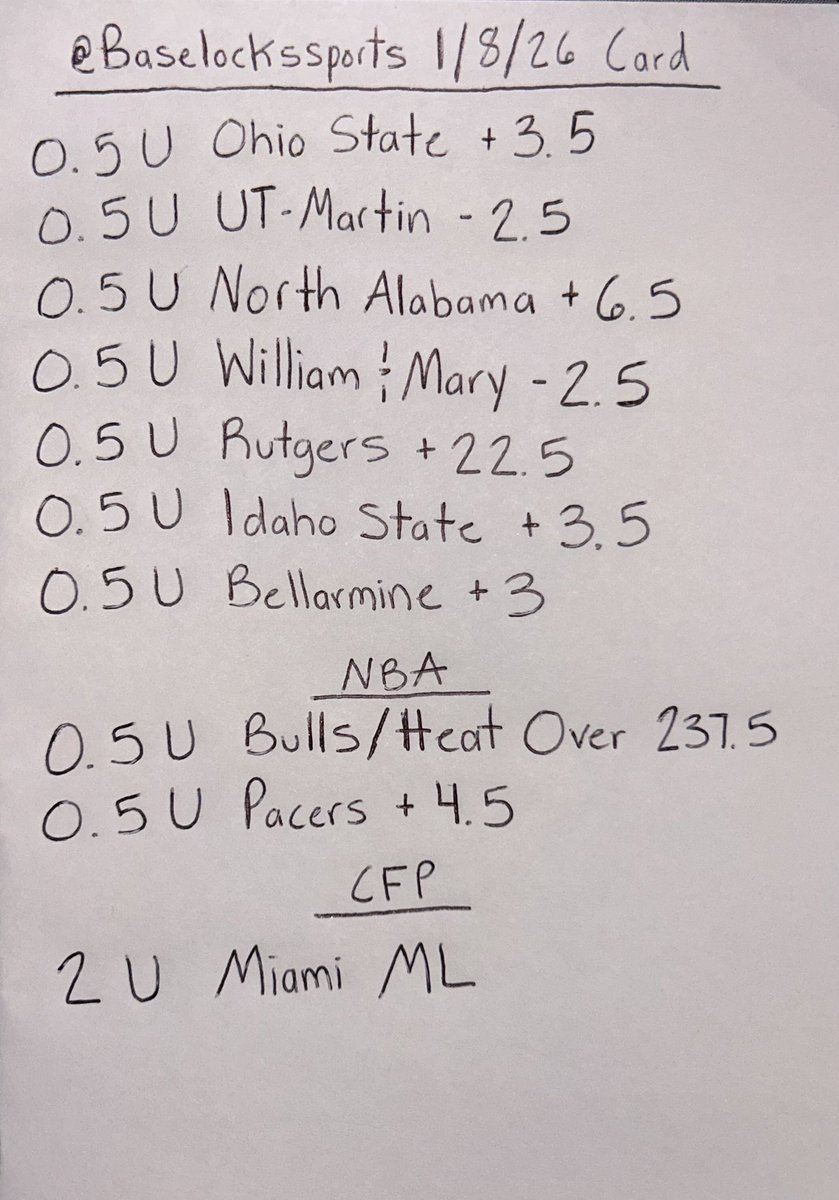 @Baselockssports 1/8/26 Card
0.5 U Ohio State + 3.5
0.5 U UT-Martin - 2.5
0.5 U North Alabama + 6.5
0.5 U William & Mary - 2.5
0.5 U Rutgers + 22.5
0.5 U Idaho State + 3.5
0.5 U Bellarmine + 3
NBA
0.5 U Bulls/Heat Over 237.5
0.5 U Pacers + 4.5
CFP
2 U Miami ML